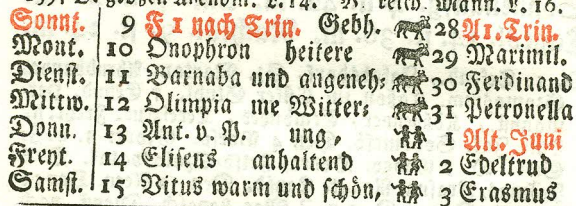 Sonnt. 9 F 1 nach Trin. Gebh. 28 A1. Trin.
Mont. 10 Onophron heitere 29 Maximil.
Dienst. 11 Barnaba und angeneh⸗ 30 Ferdinand
Mittw. 12 Olimpia me Witter⸗ 31 Petronella
Donn. 13 Ant. v. P. ung, 1 Alt. Juni
Freyt. 14 Eliseus anhaltend 2 Edeltrud
Samst. 15 Vitus warm und schön, 3 Erasmus